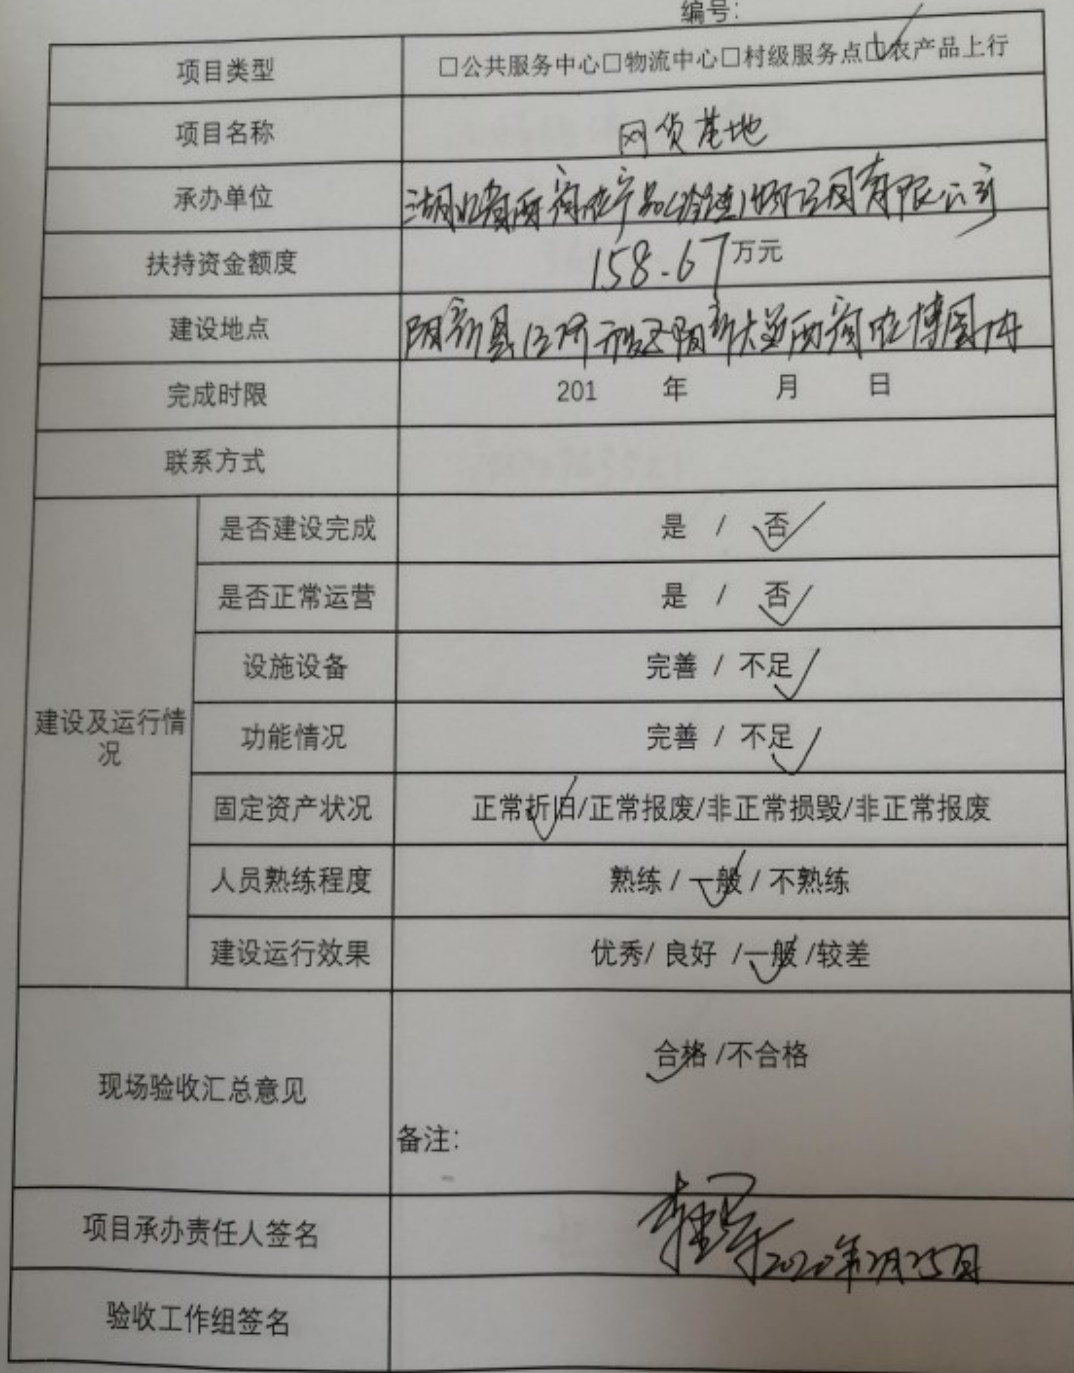 编号:
项目类型 □公共服务中心□物流中心□村级服务点□农产品上行
项目名称 网货基地
承办单位 湖北省 产品(冷链)物 园有限公司
扶持资金额度 158.67万元
建设地点 阳新县 阳新大道
完成时限 201 年 月 日
联系方式
建设及运行情况
是否建设完成 是 / 否
是否正常运营 是 / 否
设施设备 完善 / 不足
功能情况 完善 / 不足
固定资产状况 正常折旧/正常报废/非正常损毁/非正常报废
人员熟练程度 熟练 / 一般 / 不熟练
建设运行效果 优秀/ 良好 /一般 /较差
现场验收汇总意见 合格 /不合格
备注:
项目承办责任人签名 2020年 月25日
验收工作组签名